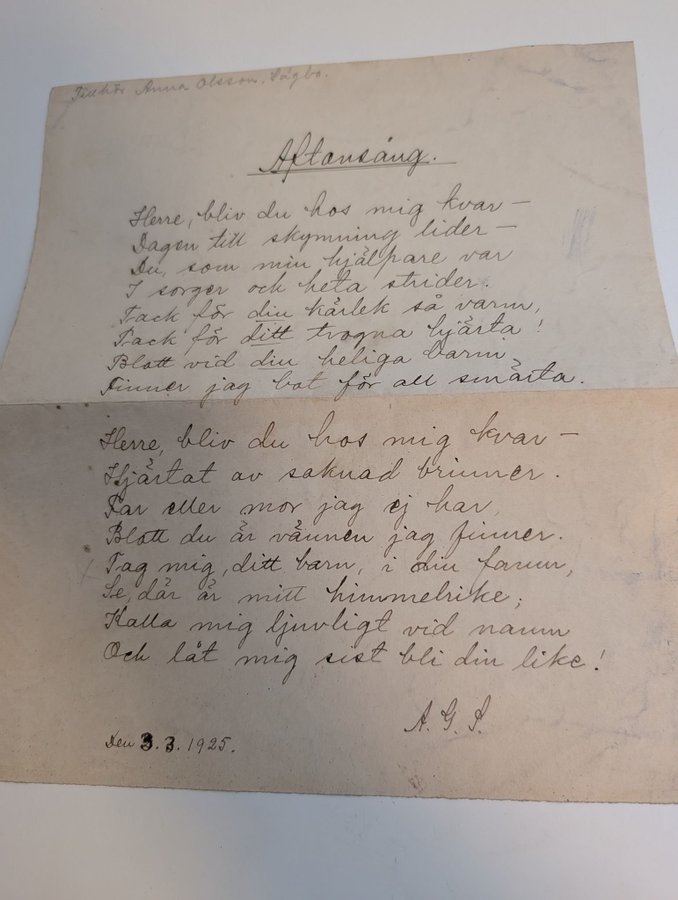 Tillhör Anna Olsson, Sågbo.
Aftonsång.
Herre, bliv du hos mig kvar –
Dagen till skymning lider –
Du, som min hjälpare var
I sorger och heta strider.
Tack för din kärlek så varm,
Tack för ditt trogna hjärta!
Blott vid din heliga barm
Finner jag bot för all smärta.
Herre, bliv du hos mig kvar –
Hjärtat av saknad brinner.
Far eller mor jag ej har,
Blott du är vännen jag finner.
Tag mig, ditt barn, i din famn,
Se, där är mitt himmelrike;
Kalla mig ljuvligt vid namn
Och låt mig sist bli din like!
A. G. S.
Den 3.3. 1925.